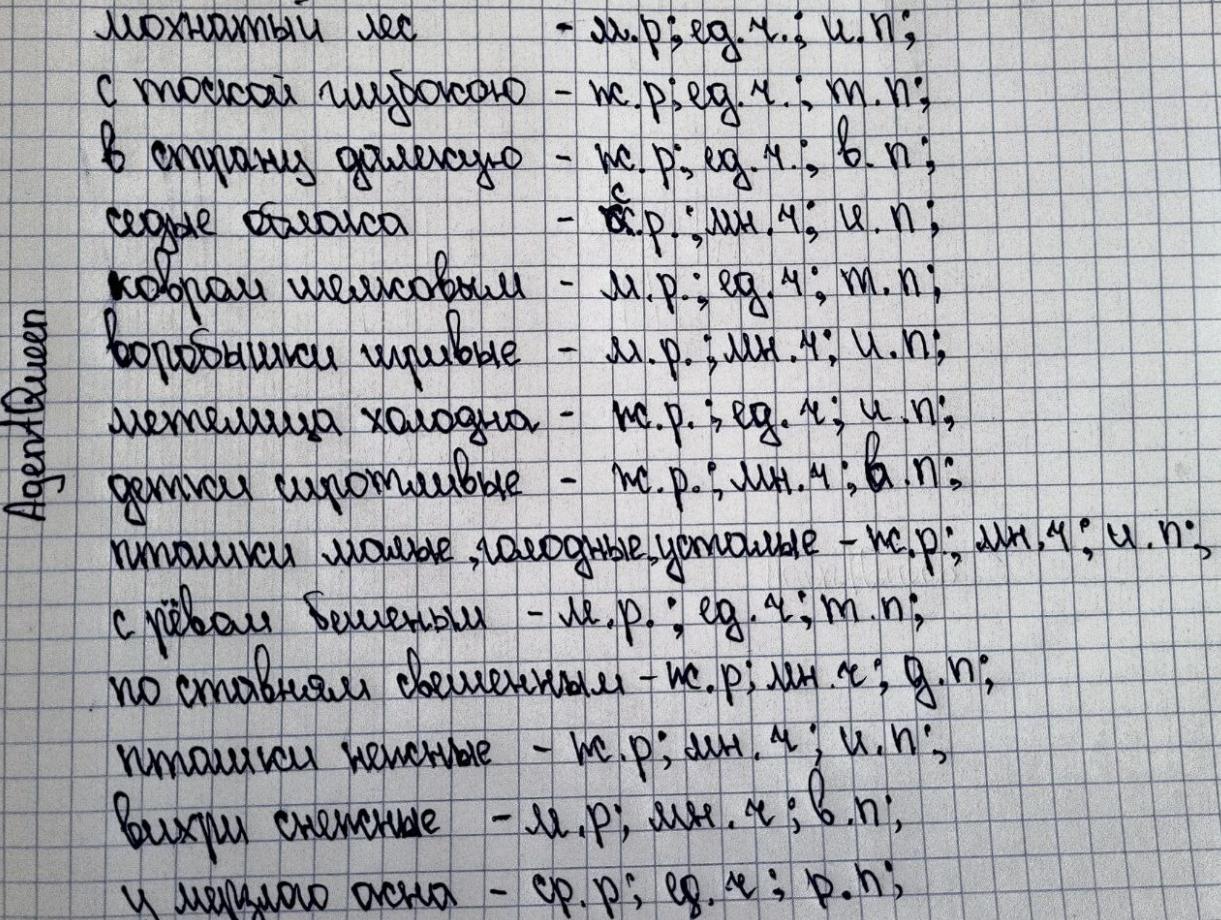 мохнатый лес - м.р; ед.ч.; и.п;
с тоской глубокою - ж.р; ед.ч.; т.п;
в страну далекую - ж.р; ед.ч.; в.п;
седые облака - с.р.; мн.ч; и.п;
ковром шелковым - м.р.; ед.ч; т.п;
воробышки игривые - м.р.; мн.ч; и.п;
метелица холодна - ж.р.; ед.ч; и.п;
детки сиротливые - ж.р.; мн.ч; в.п;
пташки малые, голодные, усталые - ж.р; мн.ч; и.п;
с рёвом бешеным - м.р.; ед.ч; т.п;
по ставням свешенным - ж.р; мн.ч; д.п;
пташки нежные - ж.р; мн.ч; и.п;
вихри снежные - м.р; мн.ч; в.п;
у мерзлого окна - ср.р; ед.ч; р.п;
AgentAQueen